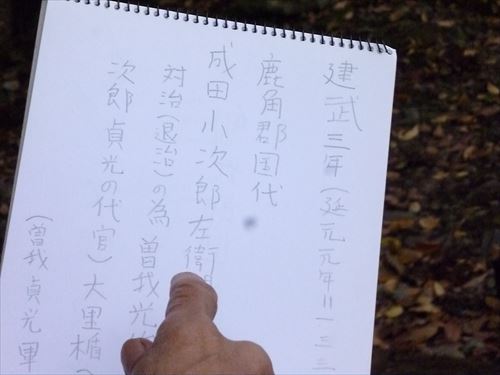 建武三年(延元元年=一三三
鹿角郡国代
成田小次郎左衛
対治(退治)の為 曽我光
次郎貞光の代官)大里楯
(曽我貞光軍